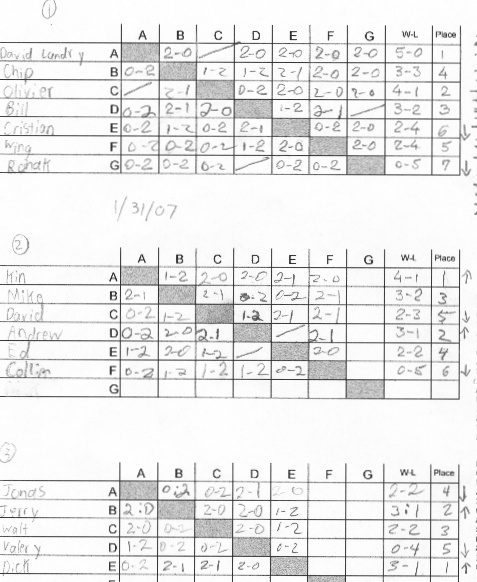 1
A B C D E F G W-L Place
David Landry A 2-0 2-0 2-0 2-0 2-0 5-0 1
Chip B 0-2 1-2 1-2 2-1 2-0 2-0 3-3 4
Olivier C 2-1 0-2 2-0 2-0 2-0 4-1 2
Bill D 0-2 2-1 2-0 1-2 2-1 3-2 3
Cristian E 0-2 1-2 0-2 2-1 0-2 2-0 2-4 6 ↓
Wing F 0-2 0-2 0-2 1-2 2-0 2-0 2-4 5
Ronak G 0-2 0-2 0-2 0-2 0-2 0-5 7 ↓
1/31/07
2
A B C D E F G W-L Place
Kin A 1-2 2-0 2-0 2-1 2-0 4-1 1 ↑
Mike B 2-1 2-1 0-2 0-2 2-1 3-2 3
David C 0-2 1-2 1-2 2-1 2-1 2-3 5 ↓
Andrew D 0-2 2-0 2-1 2-1 3-1 2 ↑
Ed E 1-2 2-0 1-2 2-0 2-2 4
Collin F 0-2 1-2 1-2 1-2 0-2 0-5 6 ↓
G
3
A B C D E F G W-L Place
Jonas A 0-2 0-2 2-1 2-0 2-2 4 ↓
Jerry B 2-0 2-0 2-0 1-2 3-1 2 ↑
Walt C 2-0 0-2 2-0 1-2 2-2 3
Valery D 1-2 0-2 0-2 0-2 0-4 5 ↓
Dick E 0-2 2-1 2-1 2-0 3-1 1 ↑